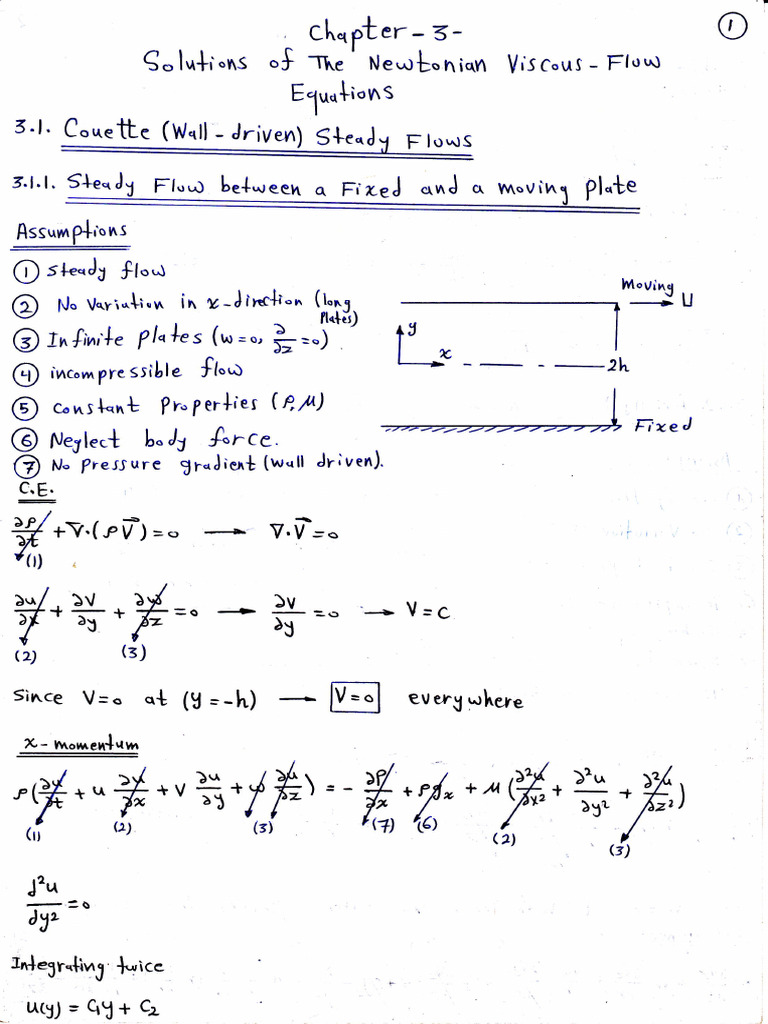 ①
Chapter-3-
Solutions of The Newtonian Viscous-Flow
Equations
3.1. Couette (Wall-driven) Steady Flows
3.1.1. Steady Flow between a Fixed and a moving plate
Assumptions
① Steady flow
② No Variation in x-direction (long plates)
③ Infinite plates (w=0, ∂/∂z=0)
④ incompressible flow
⑤ constant properties (ρ,μ)
⑥ Neglect body force.
⑦ No pressure gradient (wall driven).
Moving
U
y
x
2h
Fixed
C.E.
∂ρ/∂t + ∇·(ρV⃗)=0 → ∇·V⃗=0
(1)
∂u/∂x + ∂V/∂y + ∂w/∂z =0 → ∂V/∂y =0 → V=C
(2) (3)
Since V=0 at (y=-h) → V=0 everywhere
x-momentum
ρ(∂u/∂t + u ∂u/∂x + V ∂u/∂y + w ∂u/∂z) = - ∂P/∂x + ρgx + μ(∂²u/∂x² + ∂²u/∂y² + ∂²u/∂z²)
(1) (2) (3) (7) (6) (2) (3)
d²u/dy² =0
Integrating twice
u(y) = C₁y + C₂